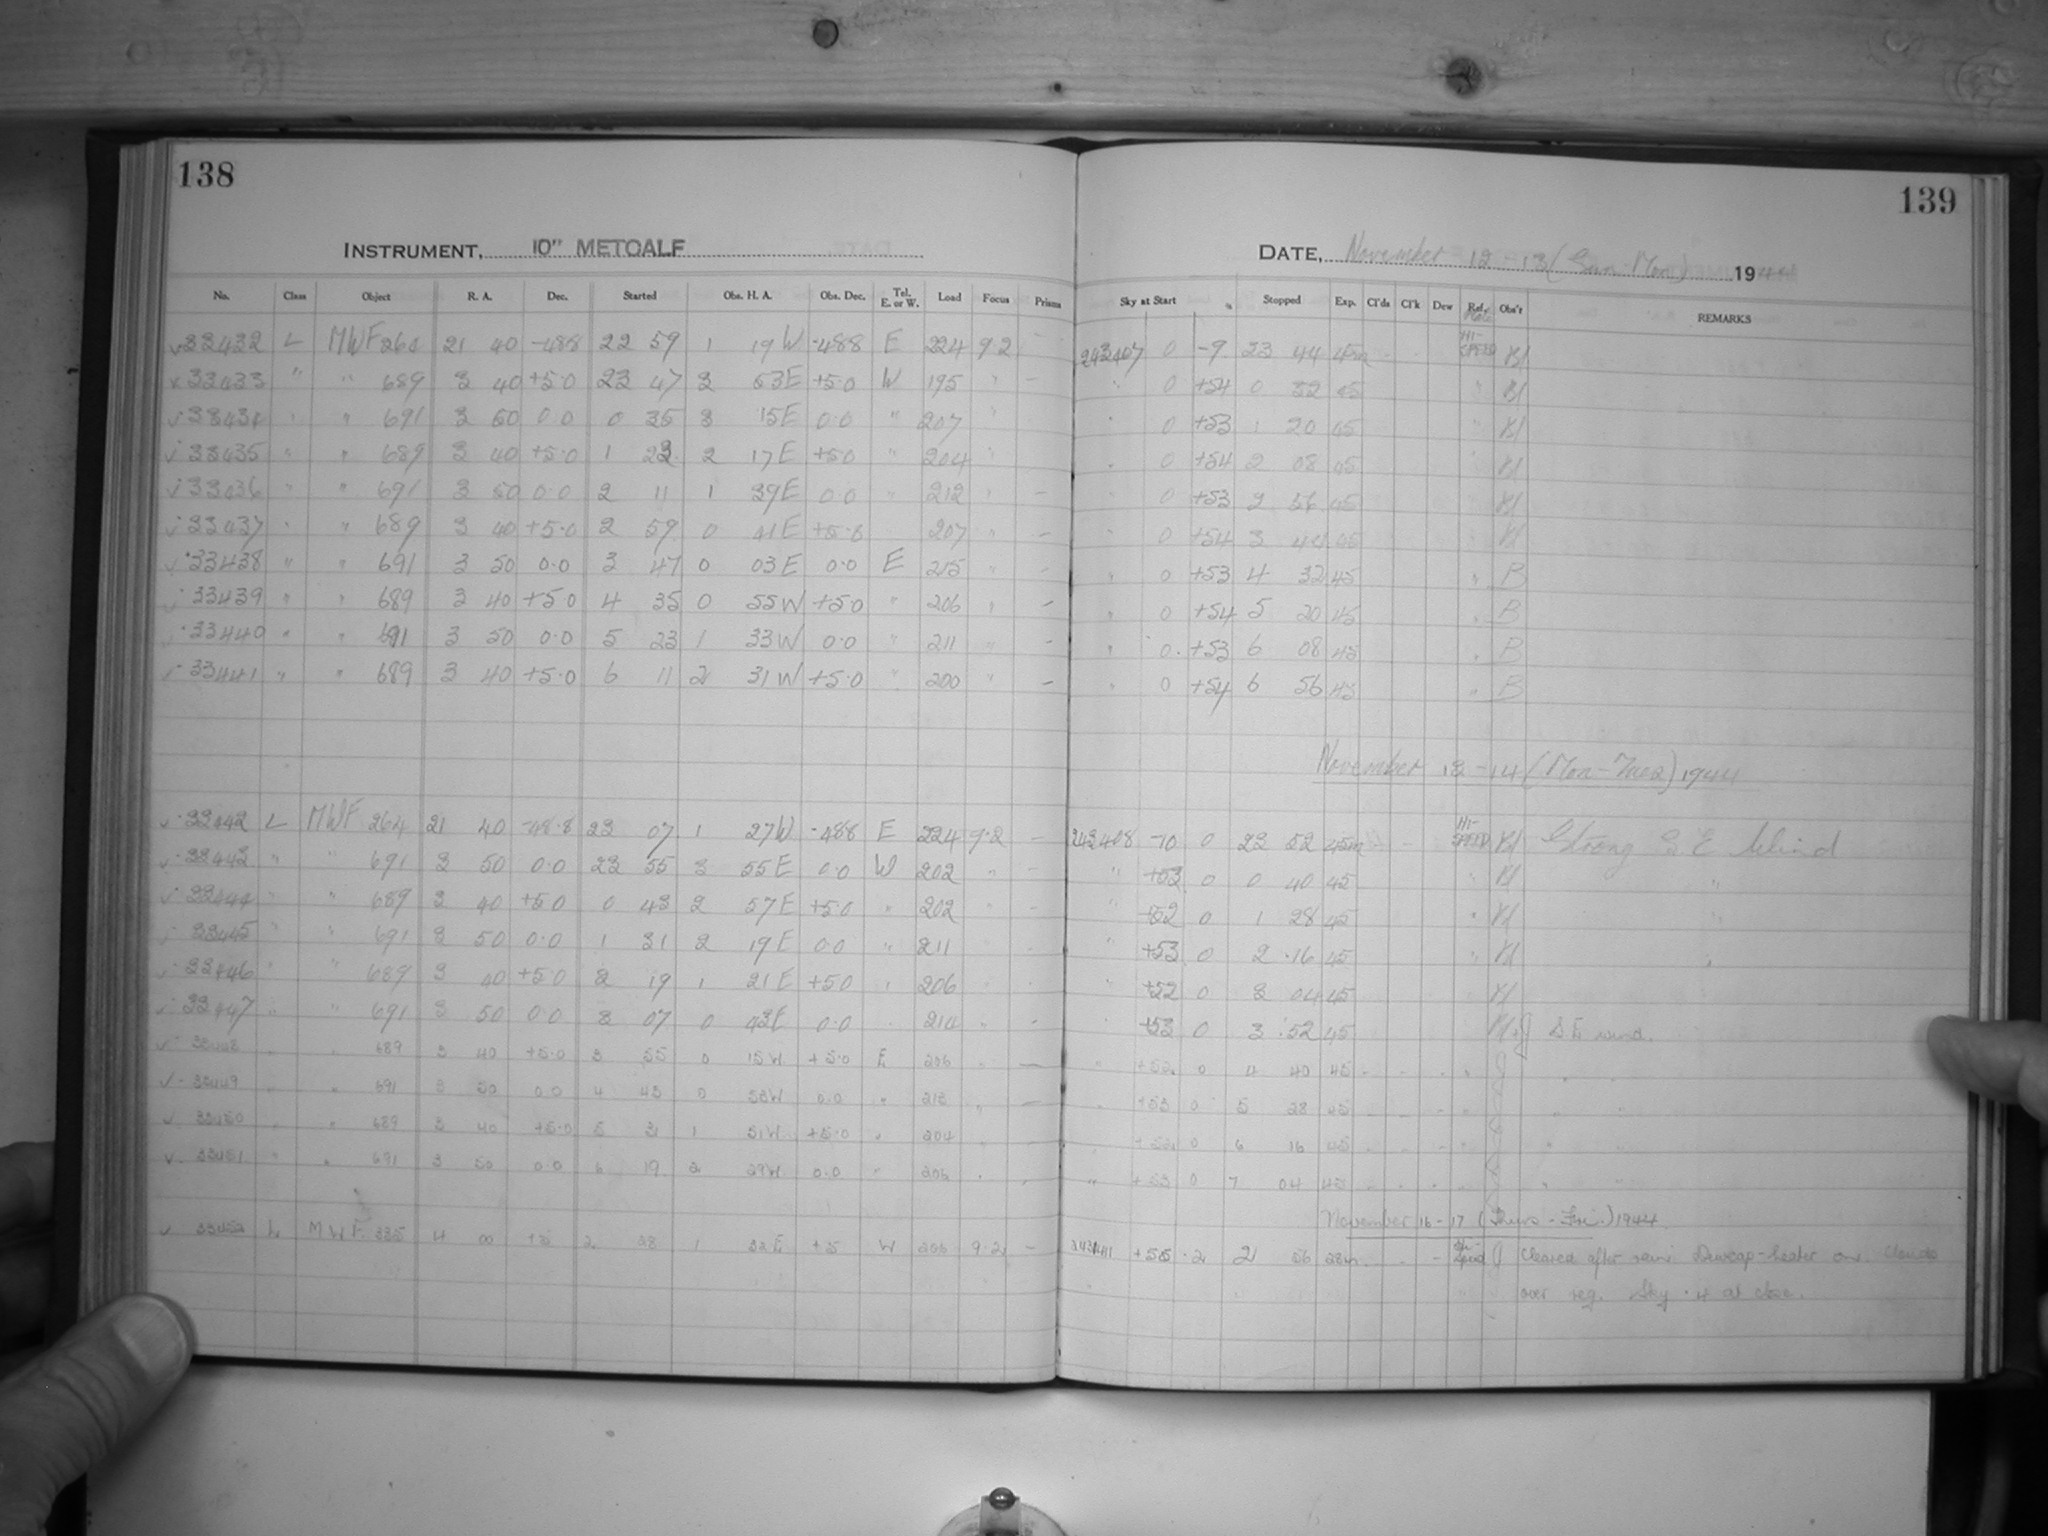 138
INSTRUMENT, 10" METCALF
No. Class Object R. A. Dec. Started Obs. H. A. Obs. Dec. Tel. E. or W. Load Focus Prisms
33432 L MWF 264 21 40 -48.8 22 59 1 19 W -48.8 E 224 9.2
33433 " " 689 3 40 +5.0 23 47 3 53 E +5.0 W 195 " -
33434 " " 691 3 50 0.0 0 35 3 15 E 0.0 " 207 "
33435 " " 689 3 40 +5.0 1 23 2 17 E +5.0 " 204 "
33436 " " 691 3 50 0.0 2 11 1 39 E 0.0 " 212 " -
33437 " " 689 3 40 +5.0 2 59 0 41 E +5.0 207 " -
33438 " " 691 3 50 0.0 3 47 0 03 E 0.0 E 215 " -
33439 " " 689 3 40 +5.0 4 35 0 55 W +5.0 " 206 " -
33440 " " 691 3 50 0.0 5 23 1 33 W 0.0 " 211 " -
33441 " " 689 3 40 +5.0 6 11 2 31 W +5.0 " 200 " -
33442 L MWF 264 21 40 -48.8 23 07 1 27 W -48.8 E 224 9.2 -
33443 " " 691 3 50 0.0 23 55 3 55 E 0.0 W 202 " -
33444 " " 689 3 40 +5.0 0 43 2 57 E +5.0 " 202 " -
33445 " " 691 3 50 0.0 1 31 2 19 E 0.0 " 211
33446 " " 689 3 40 +5.0 2 19 1 21 E +5.0 " 206
33447 " " 691 3 50 0.0 3 07 0 43 E 0.0 214 " -
33448 " " 689 3 40 +5.0 3 55 0 15 W +5.0 E 206 " -
33449 " " 691 3 50 0.0 4 43 0 53 W 0.0 " 213 " -
33450 " " 689 3 40 +5.0 5 31 1 51 W +5.0 " 204 " -
33451 " " 691 3 50 0.0 6 19 2 29 W 0.0 " 206 " -
33452 L MWF 335 4 00 +5 2 28 1 32 E +5 W 206 9.2 -
139
DATE, November 12-13 (Sun-Mon) 1944
Sky at Start Stopped Exp. Cl'ds Cl'k Dew Ref. Plate Obs'r REMARKS
243407 0 -9 23 44 45m HI-SPEED
" 0 +54 0 32 45 "
" 0 +53 1 20 45 "
" 0 +54 2 08 45 "
" 0 +53 2 56 45 "
" 0 +54 3 44 45
" 0 +53 4 32 45 " B
" 0 +54 5 20 45 " B
" 0 +53 6 08 45 " B
" 0 +54 6 56 45 " B
November 13-14 (Mon-Tues) 1944
243408 -10 0 23 52 45m - HI-SPEED Strong S E Wind
" +53 0 0 40 45 " "
" +52 0 1 28 45 " "
" +53 0 2 16 45 " "
" +52 0 3 04 45
+53 0 3 52 45 S E wind.
" +52 0 4 40 45 " "
" +53 0 5 28 45 " "
" +52 0 6 16 45 " "
" +53 0 7 04 45 " "
November 16-17 (Thurs-Fri.) 1944
243411 +55 -2 2 56 28m - Hi-Speed J Cleared after rain. Dewcap-heater on. Clouds
over reg. Sky .4 at close.